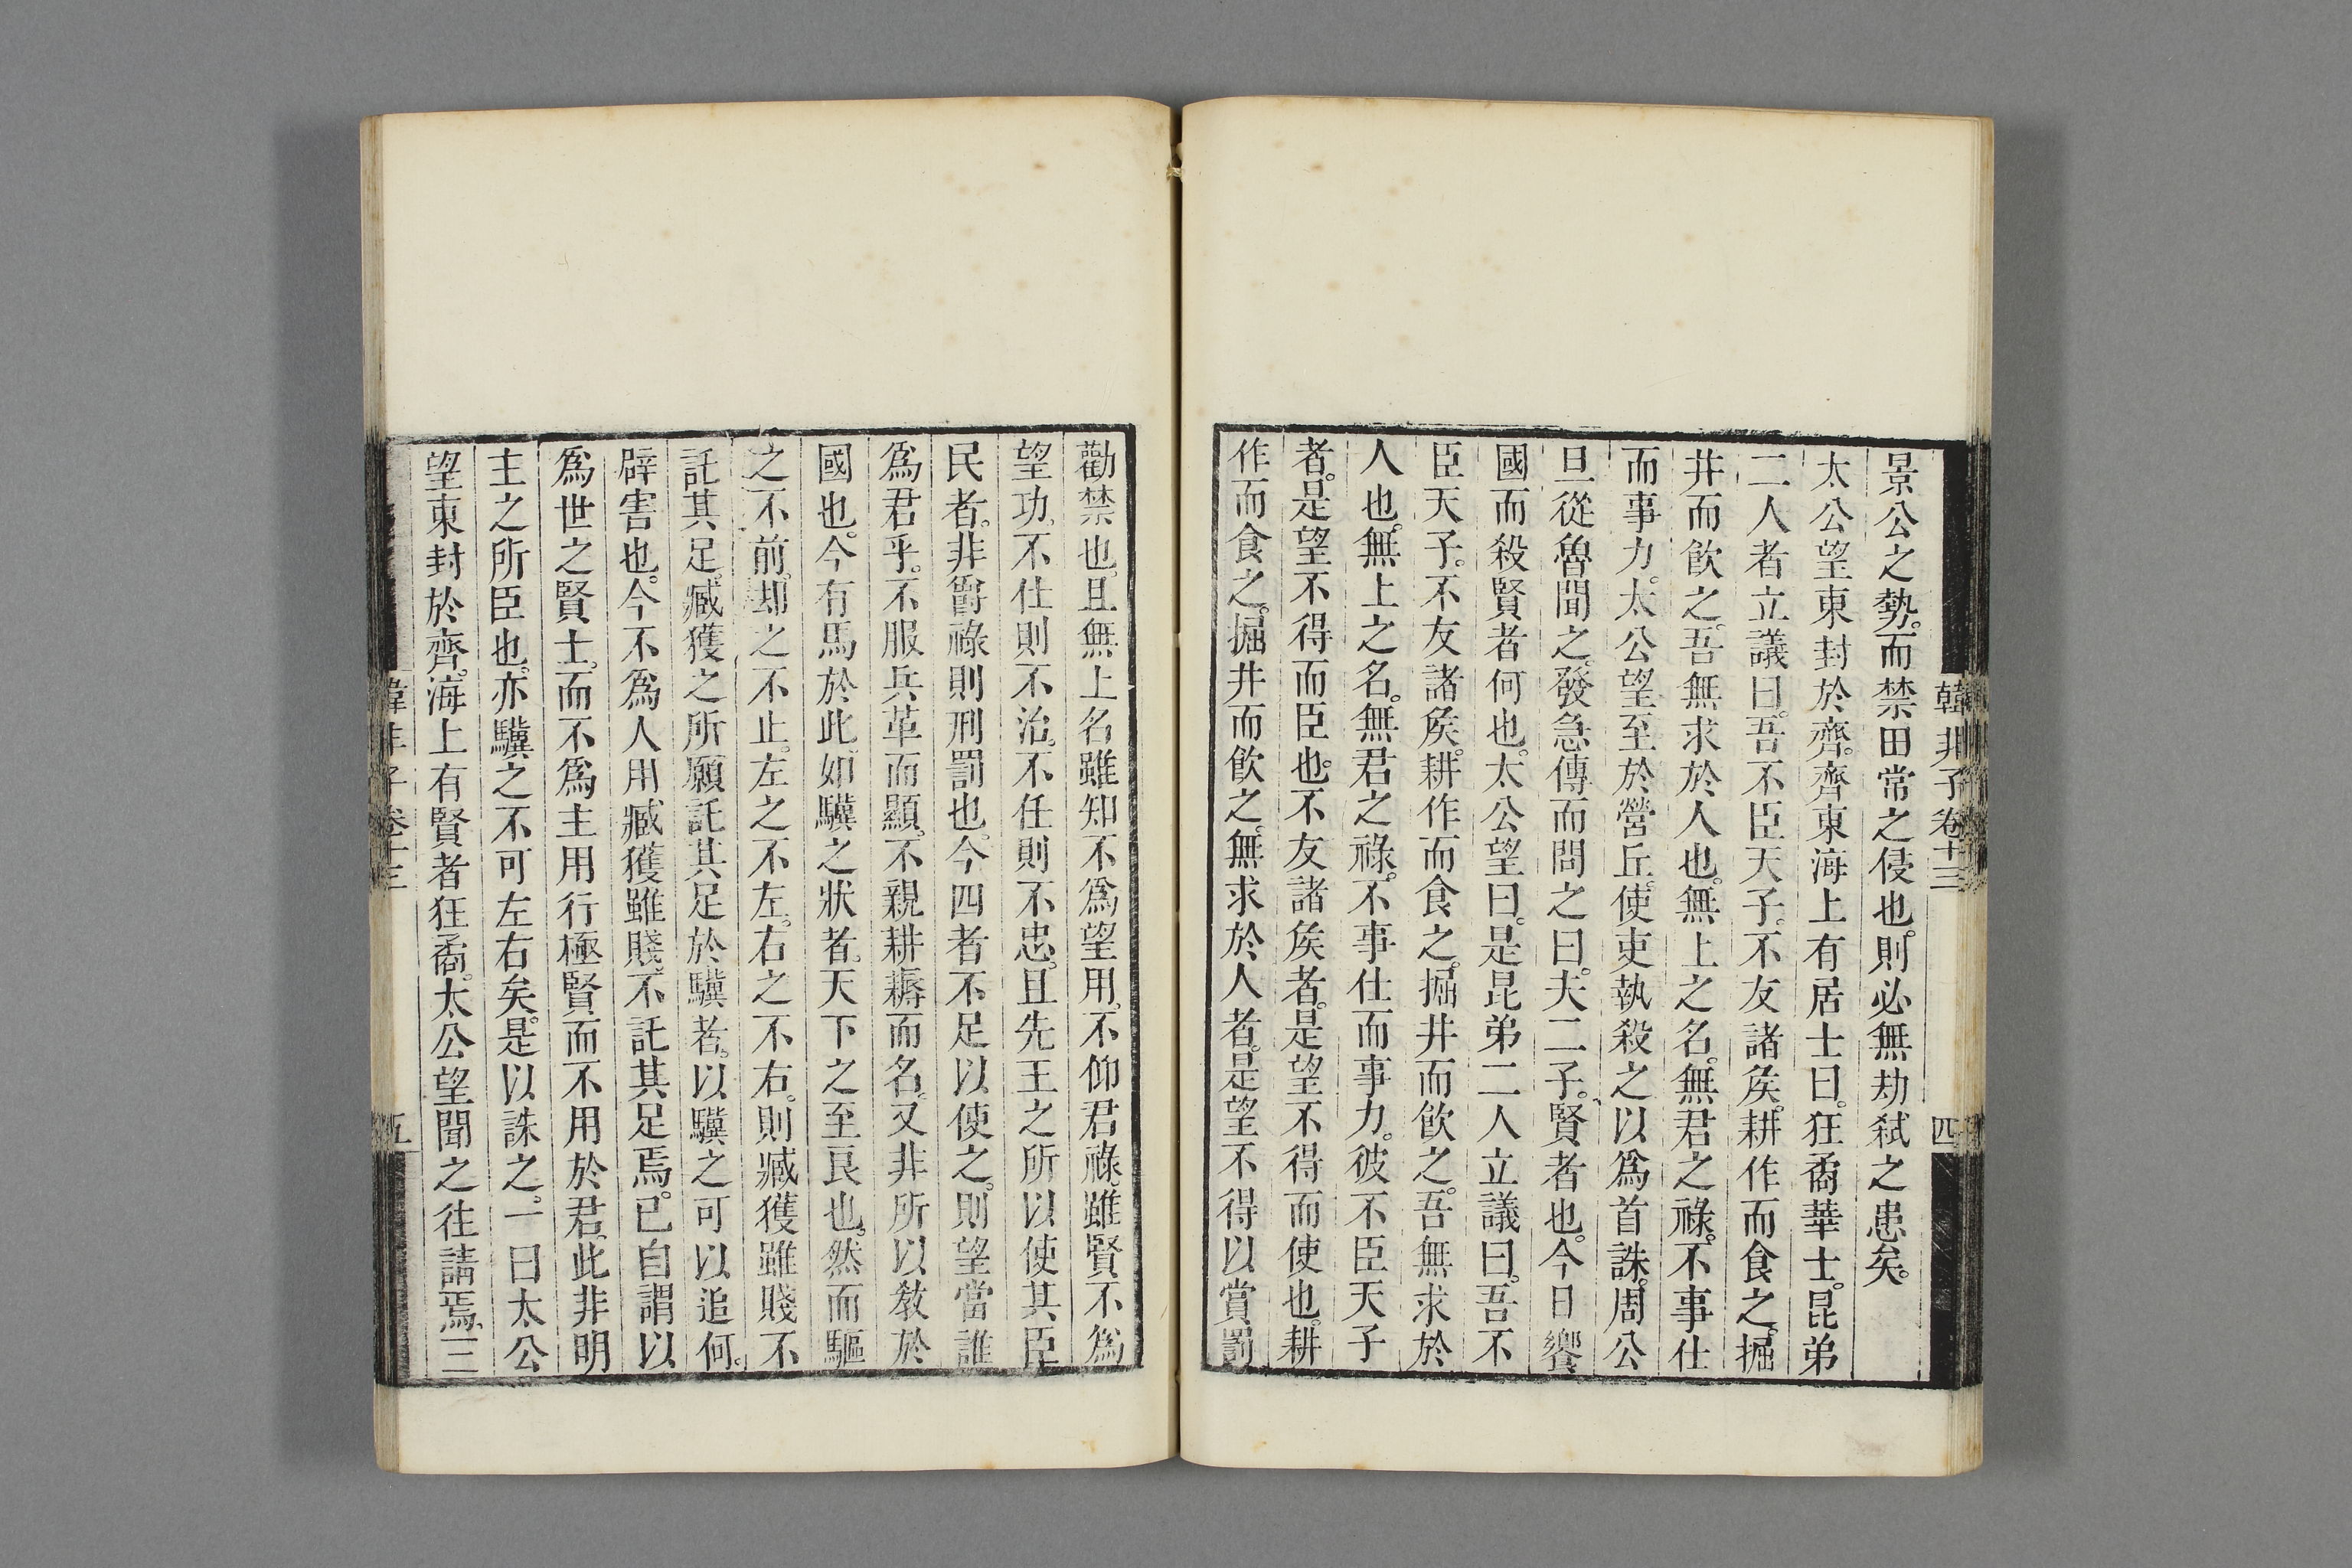 韓非子卷十三
四
景公之勢。而禁田常之侵也。則必無劫弒之患矣。
太公望東封於齊。齊東海上有居士曰。狂矞華士。昆弟
二人者立議曰。吾不臣天子。不友諸矦。耕作而食之。掘
井而飮之。吾無求於人也。無上之名。無君之祿。不事仕
而事力。太公望至於營丘。使吏執殺之以爲首誅。周公
旦從魯聞之。發急傳而問之曰。夫二子。賢者也。今日饗
國而殺賢者何也。太公望曰。是昆弟二人立議曰。吾不
臣天子。不友諸矦。耕作而食之。掘井而飮之。吾無求於
人也。無上之名。無君之祿。不事仕而事力。彼不臣天子
者。是望不得而臣也。不友諸矦者。是望不得而使也。耕
作而食之。掘井而飮之。無求於人者。是望不得以賞罰
勸禁也。且無上名雖知不爲望用。不仰君祿。雖賢不爲
望功。不仕則不治。不任則不忠。且先王之所以使其臣
民者。非爵祿則刑罰也。今四者不足以使之。則望當誰
爲君乎。不服兵革而顯。不親耕耨而名。又非所以敎於
國也。今有馬於此。如驥之狀者。天下之至良也。然而驅
之不前。却之不止。左之不左。右之不右。則臧獲雖賤不
託其足。臧獲之所願託其足於驥者。以驥之可以追何。
辟害也。今不爲人用臧獲雖賤。不託其足焉。已自謂以
爲世之賢士。而不爲主用行極賢而不用於君。此非明
主之所臣也。亦驥之不可左右矣。是以誅之。一曰太公
望東封於齊。海上有賢者狂矞。太公望聞之往請焉。三
韓非子卷十三
五